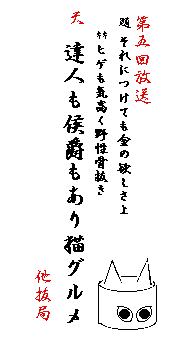 第五回放送
題 それにつけても金の欲しさよ
竹 ヒゲも気高く野性骨抜き
天 達人も侯爵もあり猫グルメ
他抜局